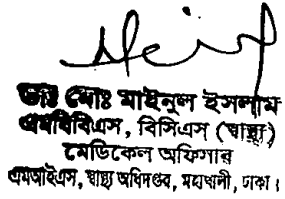 ডাঃ মোঃ মাইনুল ইসলাম
এমবিবিএস, বিসিএস (স্বাস্থ্য)
মেডিকেল অফিসার
এমআইএস, স্বাস্থ্য অধিদপ্তর, মহাখালী, ঢাকা।